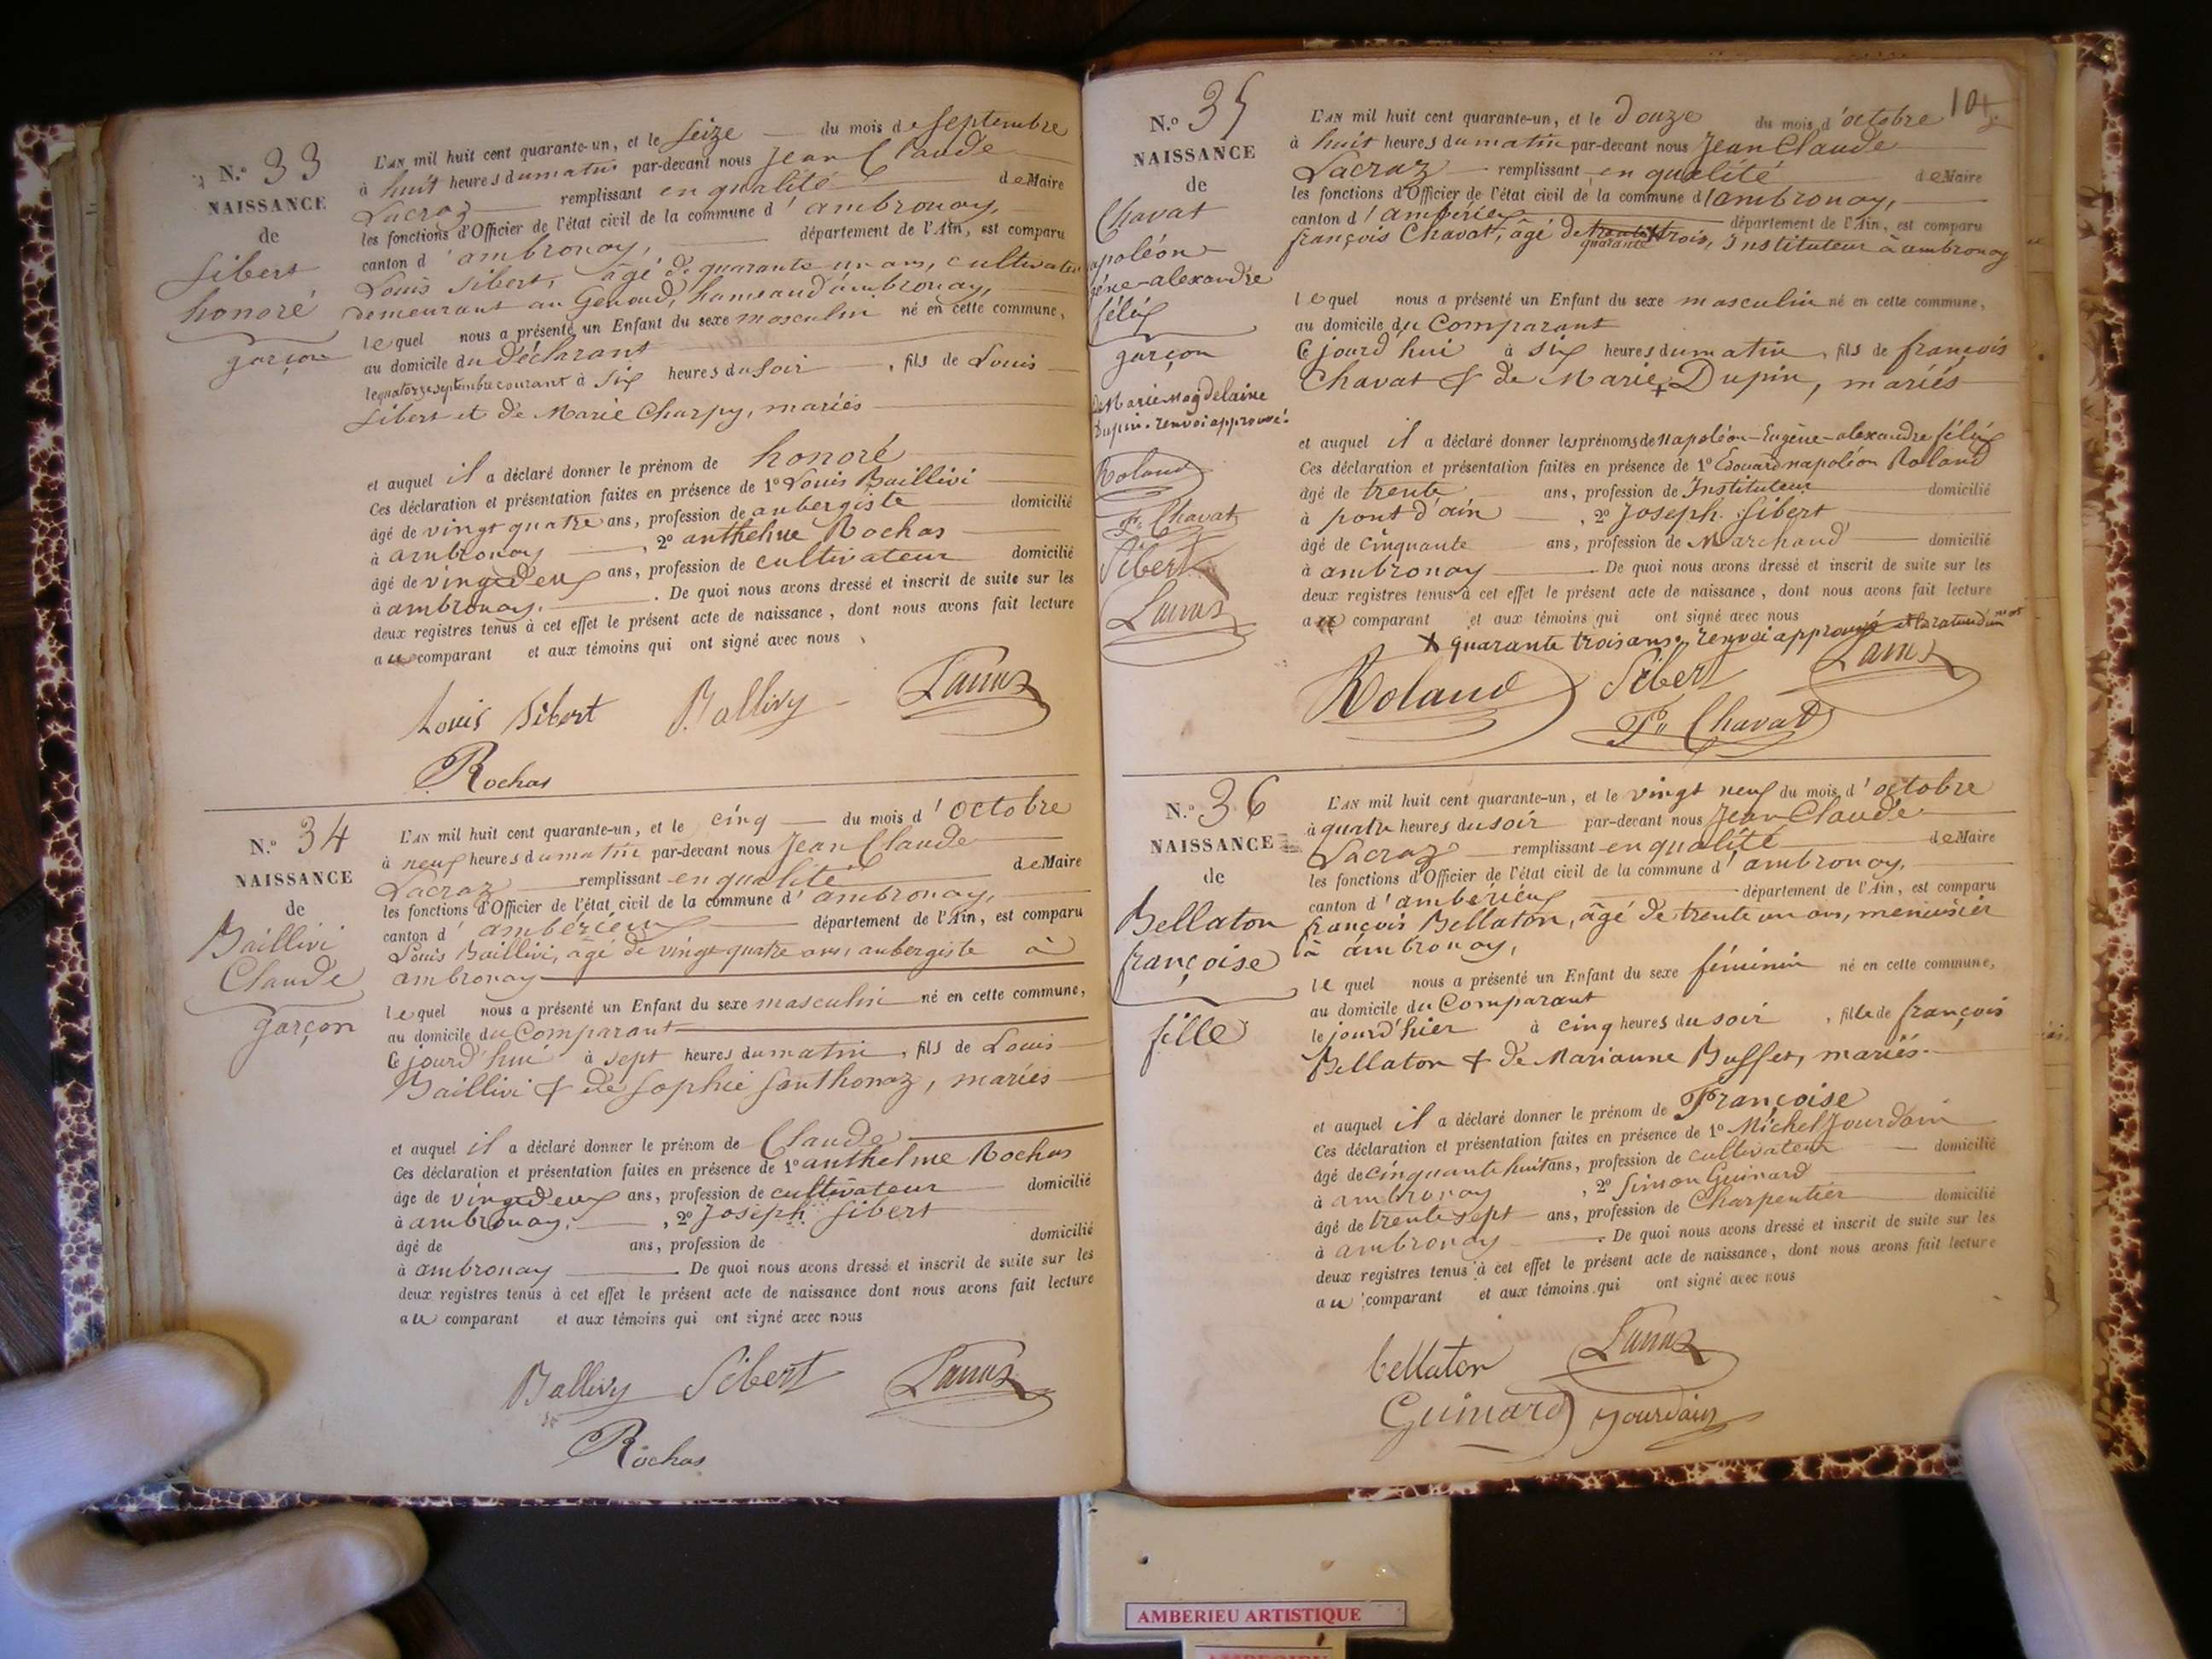 N.º 33
NAISSANCE
de
Sibert
honoré
garçon
L'AN mil huit cent quarante-un, et le Seize du mois de Septembre
à huit heures du matin par-devant nous Jean Claude
Lacroz remplissant en qualité de Maire
les fonctions d'Officier de l'état civil de la commune d'ambronay,
canton d'ambronay, département de l'Ain, est comparu
Louis Sibert, âgé de quarante un ans, cultivateur
demeurant au Genoud, hameau d'ambronay,
lequel nous a présenté un Enfant du sexe masculin né en cette commune,
au domicile du Déclarant
le quatorze septembre courant à Six heures du Soir, fils de Louis
Sibert et de Marie Charpy, mariés
et auquel il a déclaré donner le prénom de honoré
Ces déclaration et présentation faites en présence de 1º Louis Baillivi
âgé de vingt quatre ans, profession de aubergiste domicilié
à ambronay, 2º anthelme Rochas
âgé de vingt deux ans, profession de cultivateur domicilié
à ambronay. De quoi nous avons dressé et inscrit de suite sur les
deux registres tenus à cet effet le présent acte de naissance, dont nous avons fait lecture
au comparant et aux témoins qui ont signé avec nous
Louis Sibert Ballivy Lacroz
Rochas
N.º 34
NAISSANCE
de
Baillivi
Claude
garçon
L'AN mil huit cent quarante-un, et le cinq du mois d'octobre
à neuf heures du matin par-devant nous Jean Claude
Lacroz remplissant en qualité de Maire
les fonctions d'Officier de l'état civil de la commune d'ambronay,
canton d'ambérieux département de l'Ain, est comparu
Louis Baillivi, âgé de vingt-quatre ans, aubergiste à
ambronay
lequel nous a présenté un Enfant du sexe masculin né en cette commune,
au domicile du Comparant
Ce jourd'hui à sept heures du matin, fils de Louis
Baillivi & de Sophie Santhonaz, mariés
et auquel il a déclaré donner le prénom de Claude
Ces déclaration et présentation faites en présence de 1º anthelme Rochas
âgé de vingt deux ans, profession de cultivateur domicilié
à ambronay, 2º Joseph Sibert
âgé de ans, profession de domicilié
à ambronay De quoi nous avons dressé et inscrit de suite sur les
deux registres tenus à cet effet le présent acte de naissance dont nous avons fait lecture
au comparant et aux témoins qui ont signé avec nous
Ballivy Sibert Lacroz
Rochas
N.º 35
NAISSANCE
de
Chavat
apoléon
gène-alexandre
félix
garçon
de Marie Magdelaine
Dupin. renvoi approuvé.
Roland
Fs Chavat
Sibert
Lacroz
104
L'AN mil huit cent quarante-un, et le Douze du mois d'octobre
à huit heures du matin par-devant nous Jean Claude
Lacroz remplissant en qualité de Maire
les fonctions d'Officier de l'état civil de la commune d'ambronay,
canton d'ambérieux département de l'Ain, est comparu
françois Chavat, âgé de trente trois, Instituteur à ambronay
quarante
lequel nous a présenté un Enfant du sexe masculin né en cette commune,
au domicile du Comparant
Ce jourd'hui à Six heures du matin, fils de françois
Chavat & de Marie Dupin, mariés
et auquel il a déclaré donner les prénoms de Napoléon-Eugène-alexandre félix
Ces déclaration et présentation faites en présence de 1º Edouard napoléon Roland
âgé de trente ans, profession de Instituteur domicilié
à pont d'ain, 2º Joseph Sibert
âgé de Cinquante ans, profession de Marchand domicilié
à ambronay. De quoi nous avons dressé et inscrit de suite sur les
deux registres tenus à cet effet le présent acte de naissance, dont nous avons fait lecture
au comparant et aux témoins qui ont signé avec nous
X quarante trois ans, renvoi approuvé et la rature d'un mot
Roland Sibert Lacroz
Fs Chavat
N.º 36
NAISSANCE
de
Bellaton
françoise
fille
L'AN mil huit cent quarante-un, et le vingt neuf du mois d'octobre
à quatre heures du soir par-devant nous Jean Claude
Lacroz remplissant en qualité de Maire
les fonctions d'Officier de l'état civil de la commune d'ambronay,
canton d'ambérieux département de l'Ain, est comparu
françois Bellaton, âgé de trente un ans, menuisier
à ambronay,
lequel nous a présenté un Enfant du sexe féminin né en cette commune,
au domicile du Comparant
le jourd'hier à cinq heures du soir, fille de françois
Bellaton & de Marianne Buffet, mariés.
et auquel il a déclaré donner le prénom de Françoise
Ces déclaration et présentation faites en présence de 1º Michel Jourdain
âgé de cinquante huit ans, profession de cultivateur domicilié
à ambronay, 2º Simon Guinard
âgé de trente sept ans, profession de Charpentier domicilié
à ambronay. De quoi nous avons dressé et inscrit de suite sur les
deux registres tenus à cet effet le présent acte de naissance, dont nous avons fait lecture
au comparant et aux témoins qui ont signé avec nous
bellaton Lacroz
Guinard Jourdain
AMBERIEU ARTISTIQUE